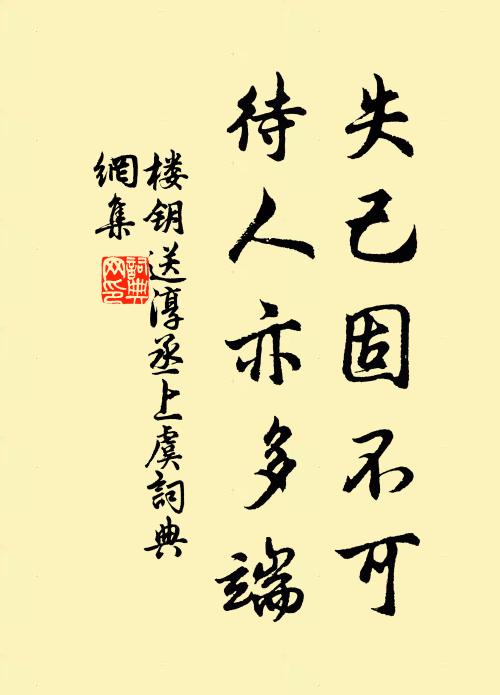 失己固不可
待人亦多端
楼钥送淳丞上虞詞典
網集
詞典
网印